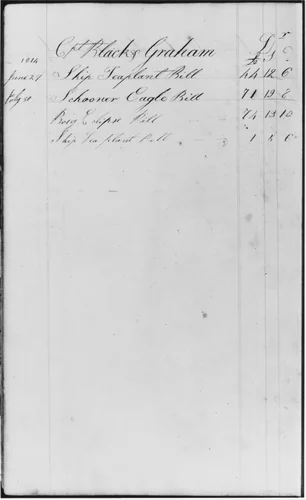 Cpt Black & Graham
1814 £ S
June 27 Ship Seaplant Bill 44 12 6
July 30 Schooner Eagle Bill 71 19 8
Brig Eclipse Bill 74 13 10
Ship Seaplant Bill 1 5 6